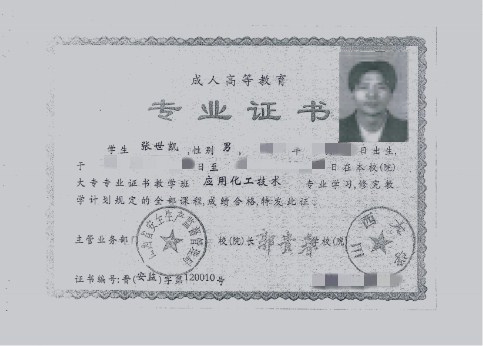 成人高等教育
专业证书
学生 张世凯 ,性别 男 , 年 日出生,
于 日至 日在本校(院)
大专专业证书教学班 应用化工技术 专业学习,修完教
学计划规定的全部课程,成绩合格,特发此证.
主管业务部门 校(院)长 学校(院)
山西大学
证书编号:晋(安监)字第120010号